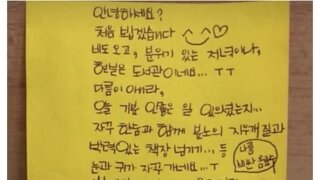 안녕하세요?
처음 뵙겠습니다 ^^♡
비도 오고, 분위기 있는 저녁이나,
현실은 도서관이네요... ㅜㅜ
다름이 아니라,
오늘 기분 안좋은 일 있으셨는지...
자꾸 한숨과 함께 분노의 지우개질과
박력있는 책장 넘기기... 등
나름 비싼
눈과 귀가 자꾸 가네요...ㅜ